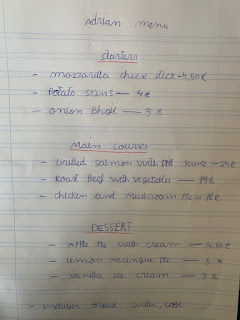 Adrian menu
starters
- mozzarella cheese stick - 4,50 €
- Potato skins — 4 €
- onion Bhaji — 3 €
Main Courses
- Grilled salmon with dill sauce - 24 €
- Roast Beef with vegetables — 19 €
- chicken and mushroom Pie = 18 €
DESSERT
- APPle Pie with cream — 4,50 €
- lemon meringue Pie — 5 €
- vanilla ice cream — 3 €
- bread, water,